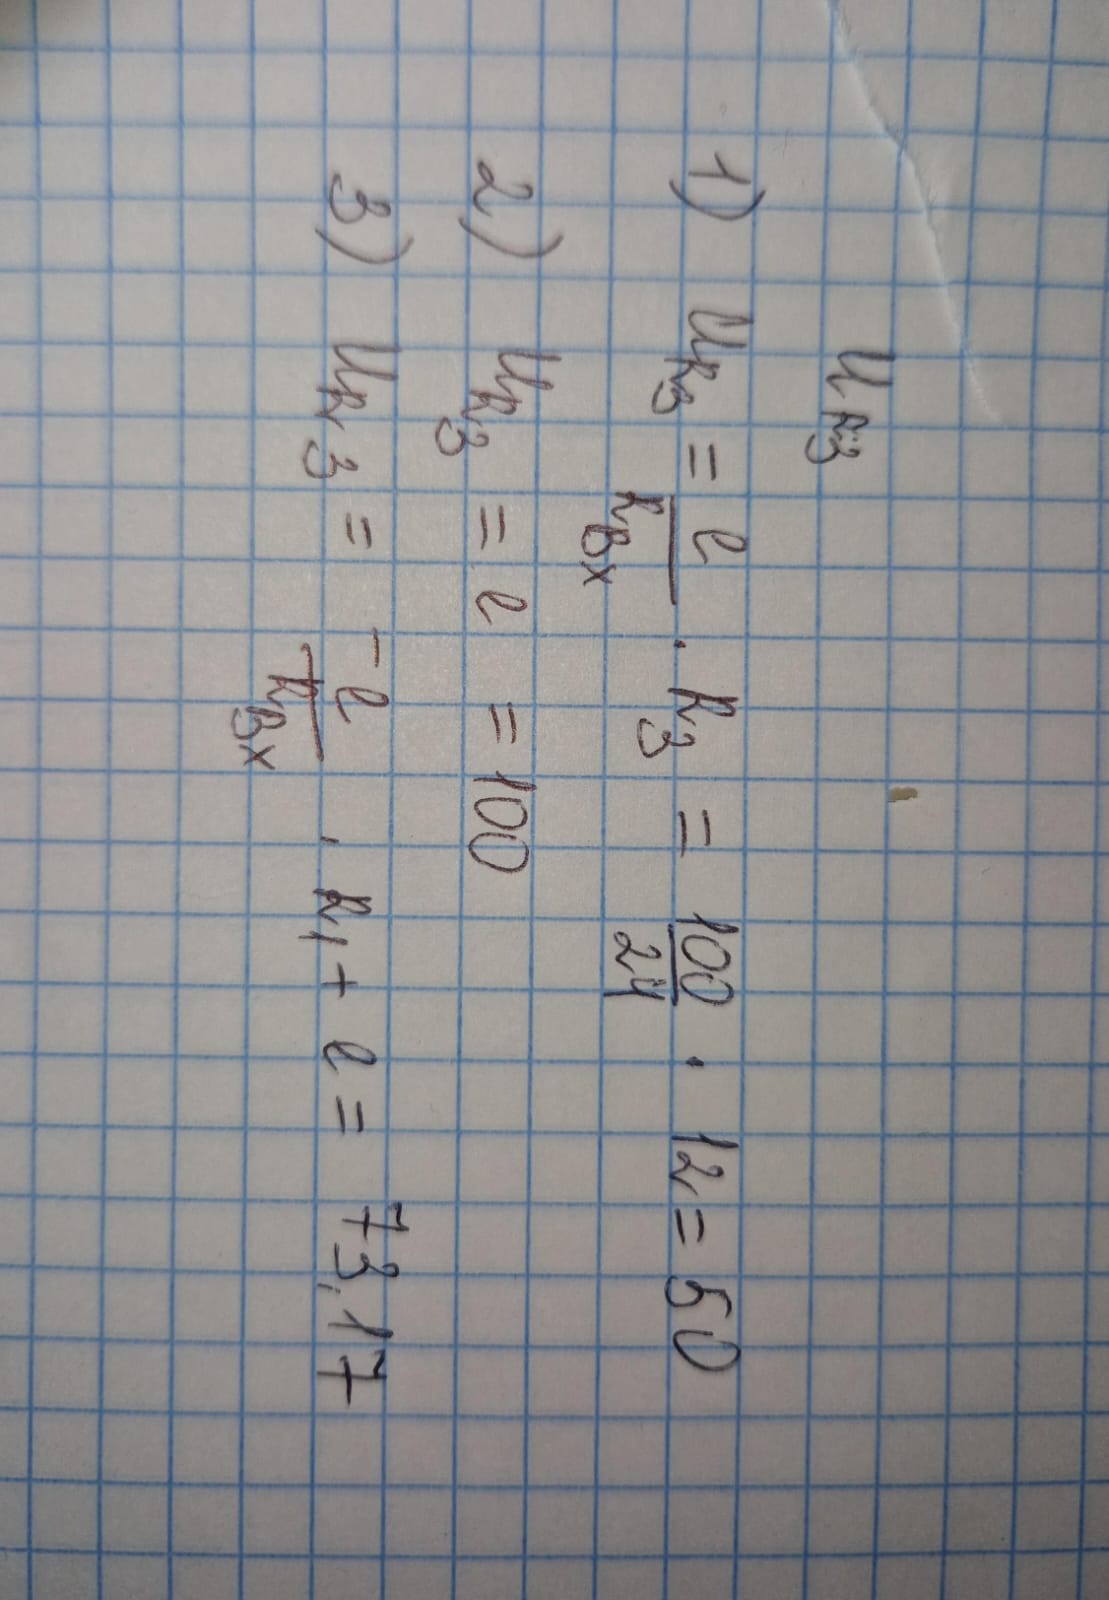 U_R3
1) U_R3 = e/R_вх · R_3 = 100/24 · 12 = 50
2) U_R3 = e = 100
3) U_R3 = -e/R_вх · R_1 + e = 73,17